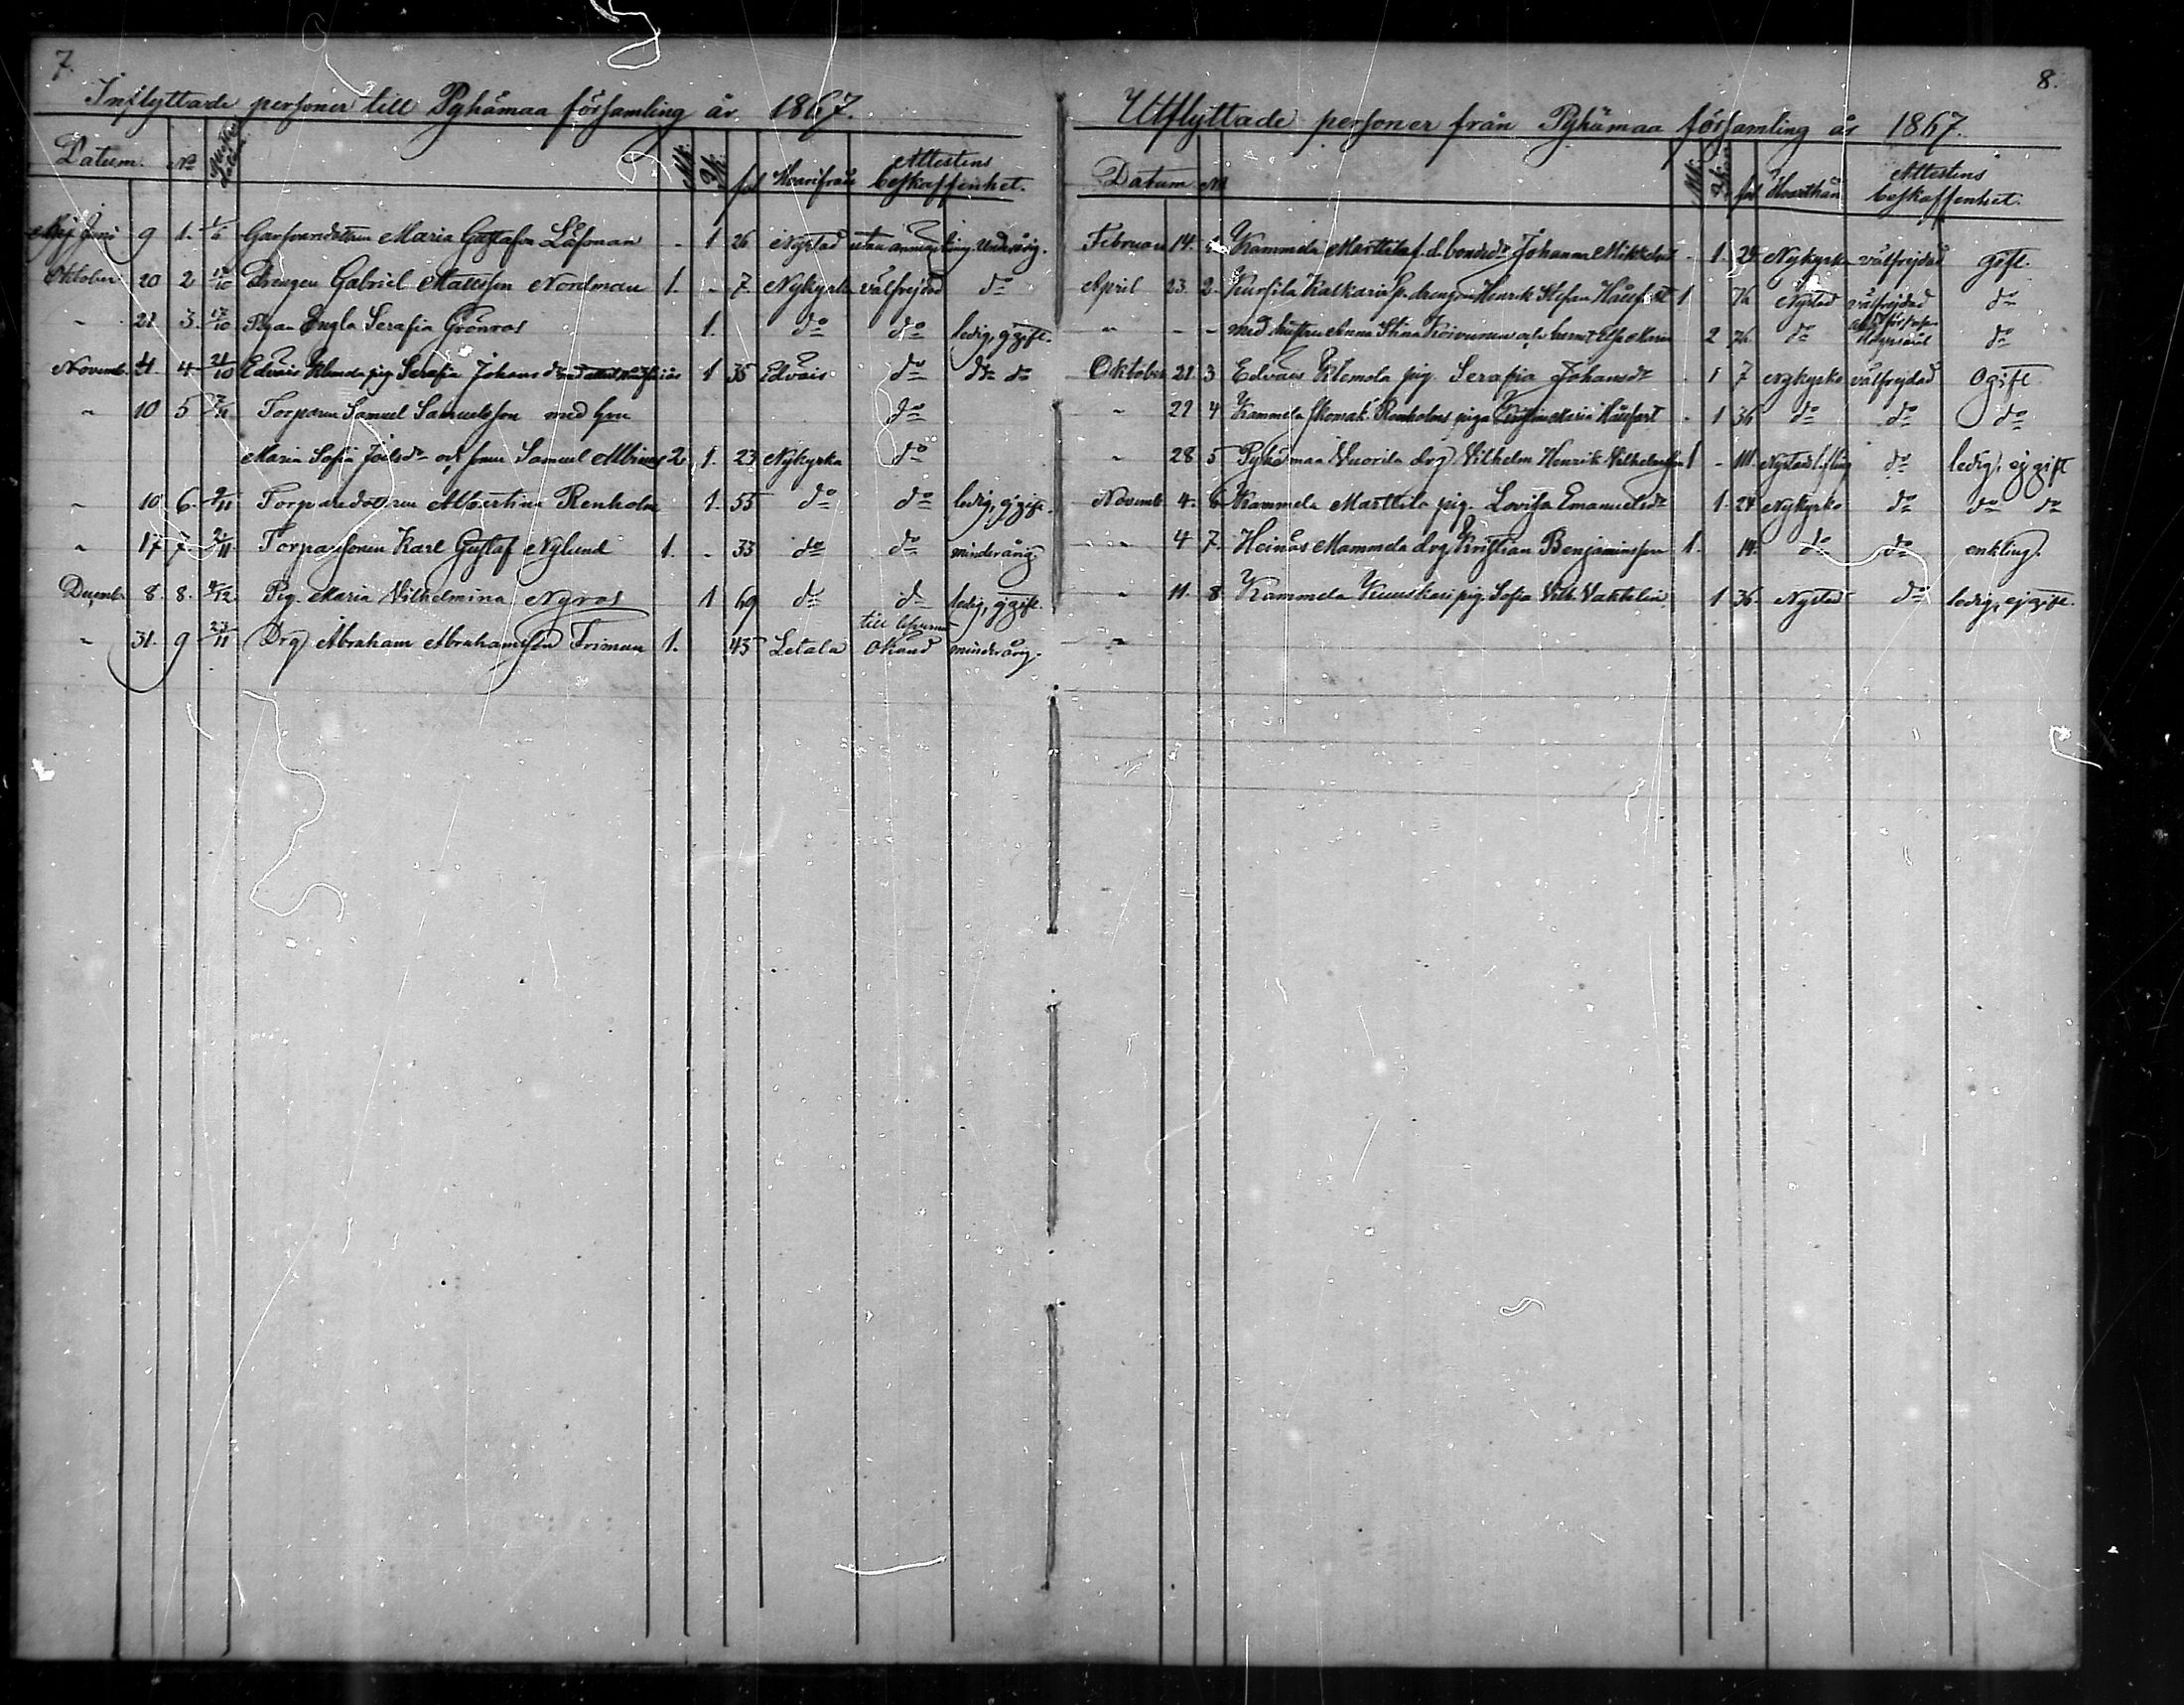 7.
Inflyttade personer till Pyhämaa församling år 1867.
Datum. No Mk. Qk. fol Hvarifrån Attestens beskaffenhet.
Maj Juni 9 1. Maria Gustafva Löfman - 1 26 Nystad utan anmärkning
Oktober 20 2 Drengen Gabriel Mattsson Nordman 1. - 7. Nykyrka välfrejdad do
" 21 3. 17/10 Pigan Engla Serafia Grönros 1. do do ledig, ej gift.
Novemb. 4 21/10 Edvais Klemola pig Serafia Johansd 1 35 Edvais do do do
" 10 5 Torparen Samuel Samuelsson med hru do
Maria Sofia Joelsdr och sonen Samuel Albinus 2 1. 23 Nykyrka do
" 10 6. 9/11 Torparedottren Albertina Renholm 1. 55 do do ledig, ej gift.
" 17 7 Torparesonen Karl Gustaf Nylund 1. - 33 do do minderårig
Decemb. 8. 8. 4/12 Pig. Maria Vilhelmina Nyros 1 69 do do ledig, ej gift.
" 31. 9 23/11 Drg Abraham Abrahamsson Friman 1. 45 Letala till okänd minderårig.
8.
Utflyttade personer från Pyhämaa församling år 1867.
Datum No Mk. Qk. fol Hvarthän Attestens beskaffenhet.
Februari 14. 1. Kammela Marttila f.d. bondedr Johanna Mikkelsdr - 1. 24. Nykyrka välfrejdad gift.
April 23. 2. Kursila Katkaris drengen Henrik Stefan 1 76 Nystad välfrejdad do
" - - med hustrun Anna Stina Koivunen och barnet Maria 2 76 do do
Oktober 21 3 Edvais Klemola pig. Serafia Johansdr - 1 7 Nykyrko välfrejdad Ogift
" 22 4 Kammela skomak. Renholms piga Maria - 1 36 do do do
" 28 5 Pyhämaa Vuorila drg Vilhelm Henrik Vilhelmsson 1 - 111. Nystad do ledig, ej gift
Novemb 4. 6 Kammela Marttila pig. Lovisa Emanuelsdr 1. 24 Nykyrko do do do
" 4 7. Heinäs Mammela drg Kristian Benjaminsson 1. 14. do do enkling.
" 11. 8 Kammela Kuuskari pig. Sofia Vilh. 1 36. Nystad do ledig, ej gift.
"